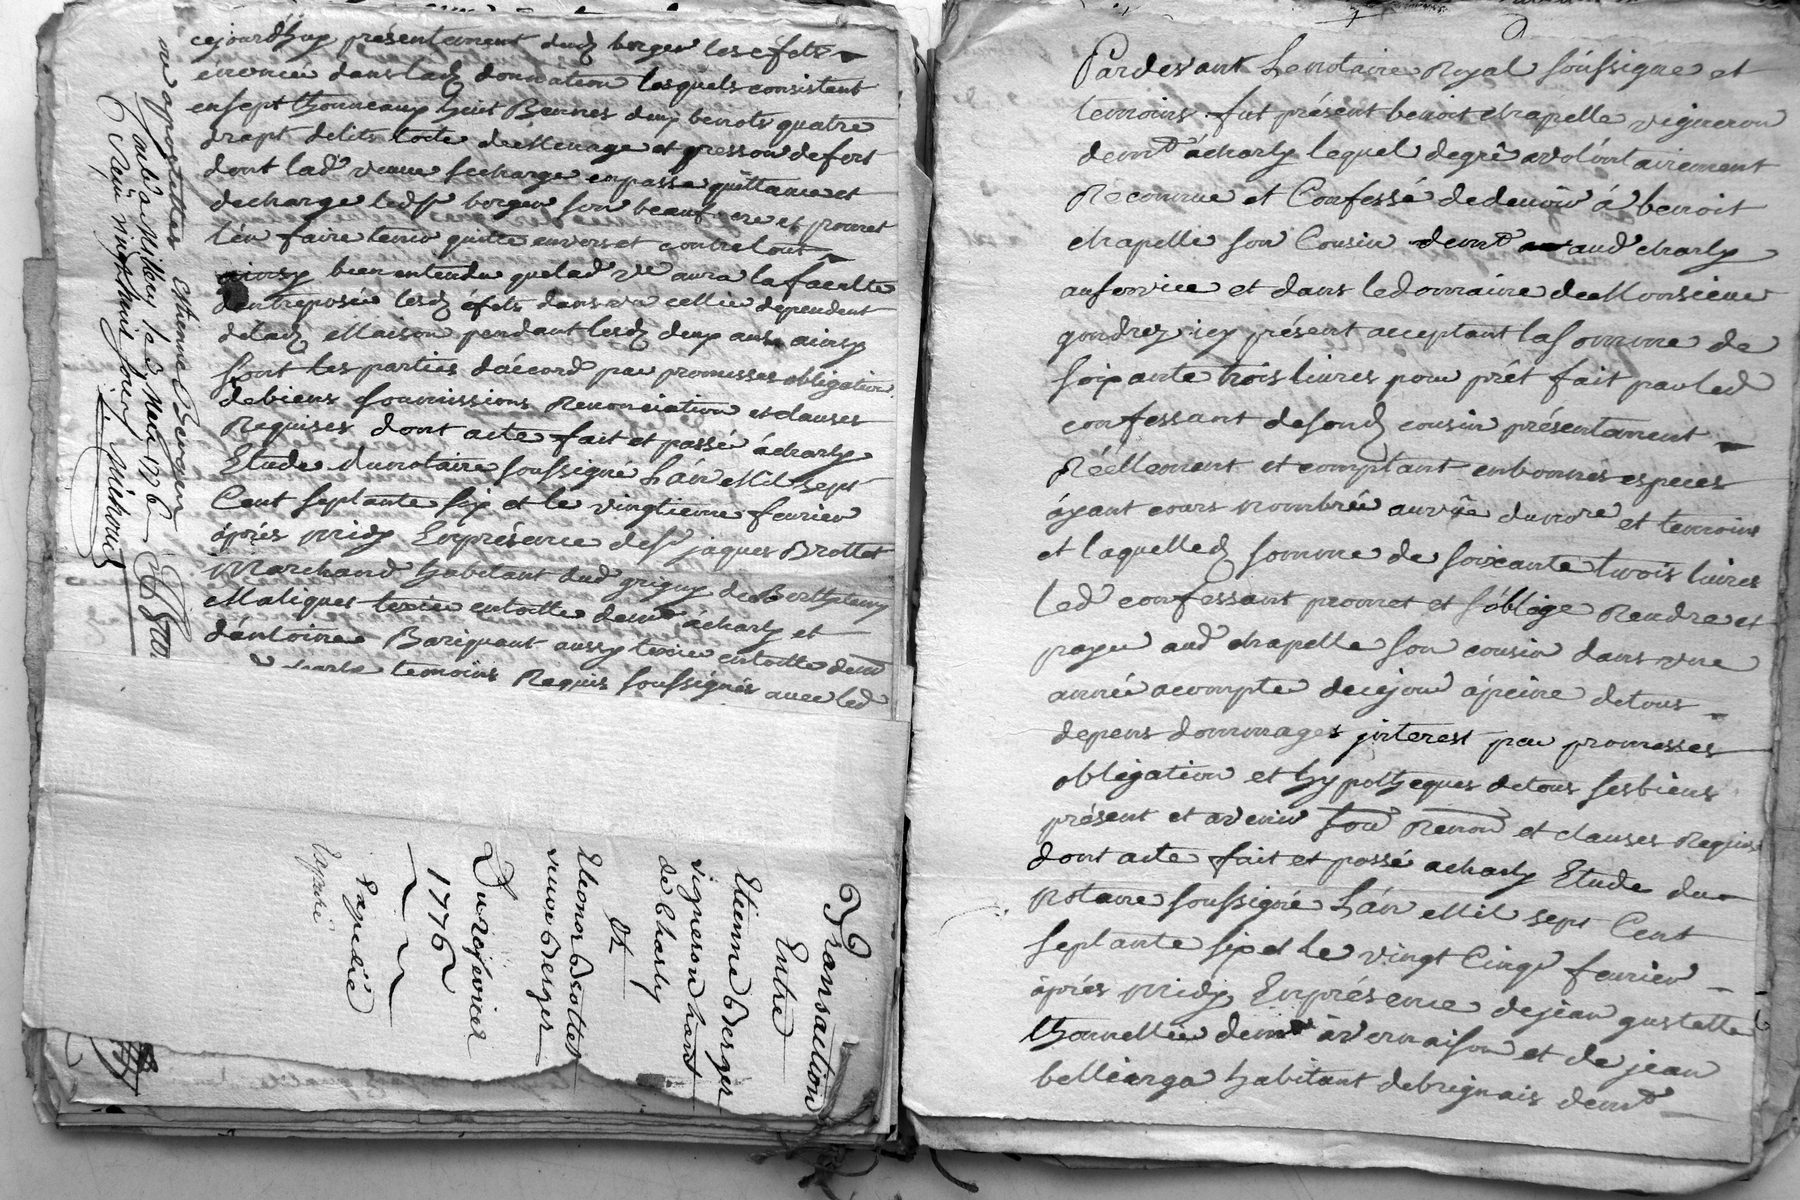 cejourd'huy présentement dud berger les éfets
énoncée dans lad donnation lesquels consistent
en sept thonneaux huit Bennes deux benots quatre
drapt delits toile de Menage et pressou de fert
dont lad veuve se charge en passe quittance et
decharge led sr berger son beauf et promet
l'en faire tenir quitte envers et contre tout
bien entendu que lad ve aura la faculte
d'entreposée lesd éfets dans un cellie dependent
delad Maison pendant lesd deux ans ainsy
sont les parties d'accord par promesses obligation
de biens soumissions Renonciation et clauses
Requises dont acte fait et passé à charly
Etude du notaire soussigné L'an Mil sept
Cent septante six et le vingtieme fevrier
après midy En présence de sr jaques Brottet
Marchand habitant dud grigny de Berthelemy
Matiques texie en toille demt à charly et
d'antoine Bariquant aussy texie en toille demt
charly temoins Requis soussignés avec led
apostelles Etienne Berger
Conlé a Millery le 3 Mars 1776
Reçu vingt huit sous
Transaction
Entre
Etienne Berger
vigneron hant
de Charly
Et
Eleonor Brottet
veuve Berger
Du 20 fevrier
1776
Expedié
Expedié
Pardevant Le notaire Royal soussigné et
temoins fut présent benoit chapelle vigneron
demt à charly lequel degré a volontairement
Reconnue et Confessé dedevoir à benoit
chapelle son Cousin demt aud charly
au service et dans le domaine de Monsieur
gondrez icy présent acceptant la somme de
soixante trois livres pour prêt fait par led
confessant de sond cousin présentement
Réellement et comptant en bonnes especes
áyant cours nombrée au vûe du nore et temoins
et laquelled somme de soixante trois livres
led confessant promet et s'oblige Rendre et
payer aud chapelle son cousin dans une
année a compte de ce jour à peine de tous
depens dommages jnterest par promesses
obligation et hypotheques de tous ses biens
présent et avenir sou Renon et clauses Requis
dont acte fait et passé a charly Etude du
notaire soussigné L'an Mil sept Cent
septante six et le vingt Cinqe fevrier
après midy En présence de jean gustelle
thonnellie demt à vernaison et de jean
belliarga habitant de brignais demt